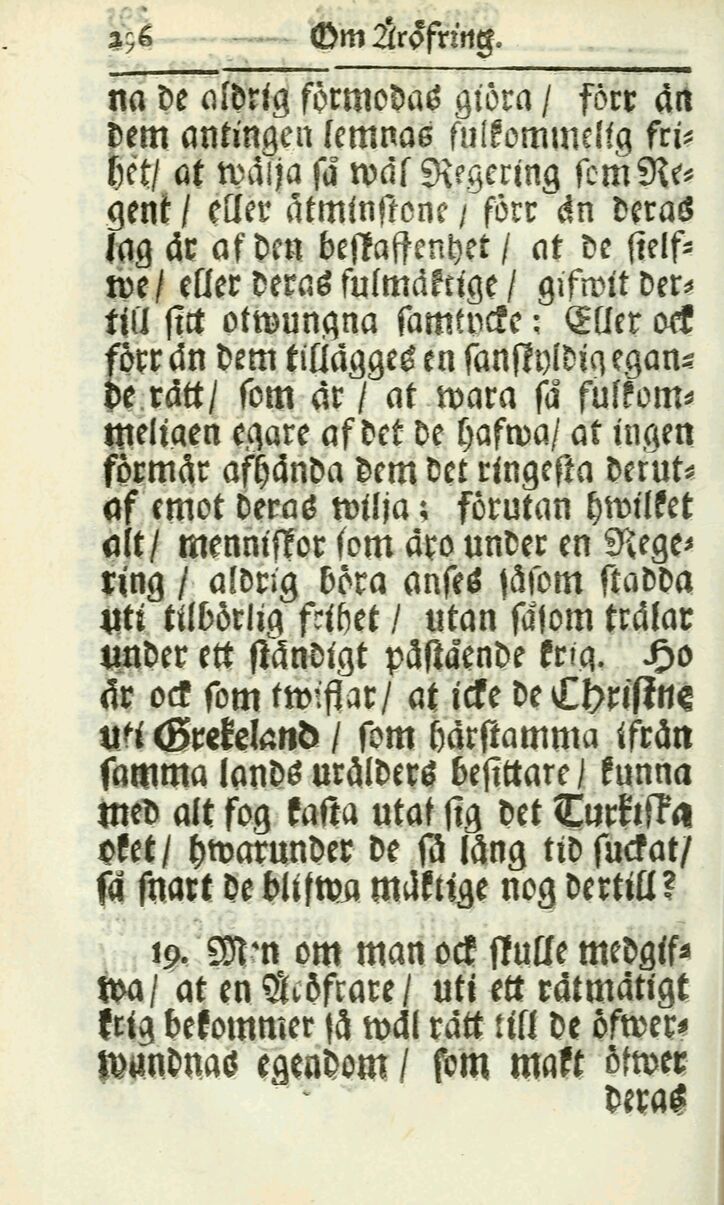 296 Om Äröfring.
na de aldrig förmodas giöra / förr än
dem antingen lemnas fulkommelig fri⸗
het/ at wälja så wäl Regering som Re⸗
gent / eller åtminstone / förr än deras
lag är af den beskaffenhet / at de sielf⸗
we / eller deras fulmäktige / gifwit der⸗
till sitt otwungna samtycke: Eller ock
förr än dem tillägges en sanskyldig egan⸗
de rätt/ som är / at wara så fulkom⸗
meligen egare af det de hafwa/ at ingen
förmår afhända dem det ringesta derut⸗
af emot deras wilja; förutan hwilket
alt/ menniskor som äro under en Rege⸗
ring / aldrig böra anses såsom stadda
uti tilbörlig frihet / utan såsom trälar
under ett ständigt påstående krig. Ho
är ock som twiflar/ at icke de Christne
uti Grekeland / som härstamma ifrån
samma lands urålders besittare / kunna
med alt fog kasta utaf sig det Turkiska
oket/ hwarunder de så lång tid suckat/
så snart de blifwa mäktige nog dertill?
19. Men om man ock skulle medgif⸗
wa/ at en Äröfrare/ uti ett rätmätigt
krig bekommer så wäl rätt till de öfwer⸗
wundnas egendom / som makt öfwer
deras